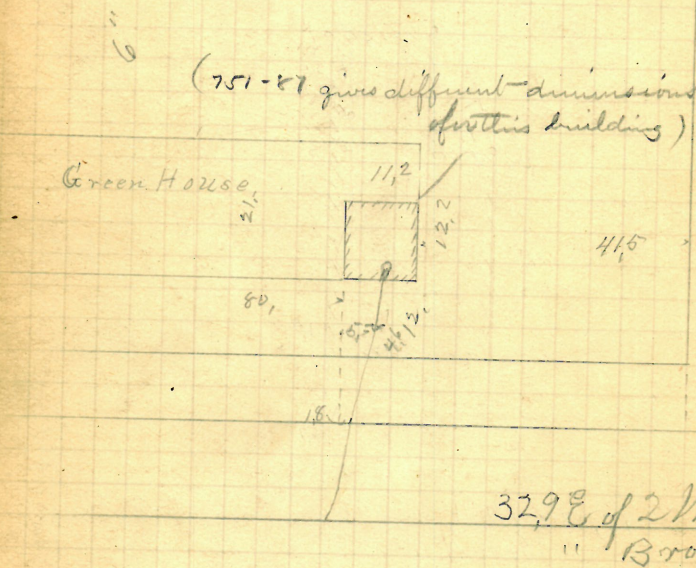 6"
(751-87 gives different dimensions
of this building)
Green House
11,2
21,
12,2
41,5
80,
5,
4,6
12,
18
32,9 E of 2
" Bro